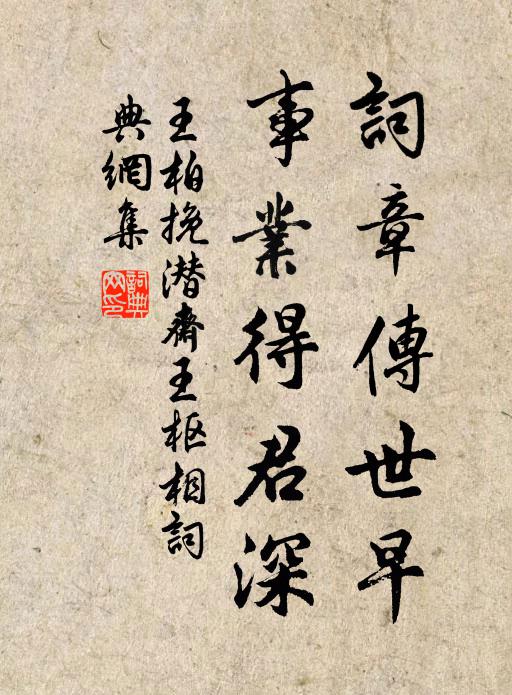 詞章傳世早
事業得君深
王柏挽潜齋王枢相詞
典網集
詞典網印